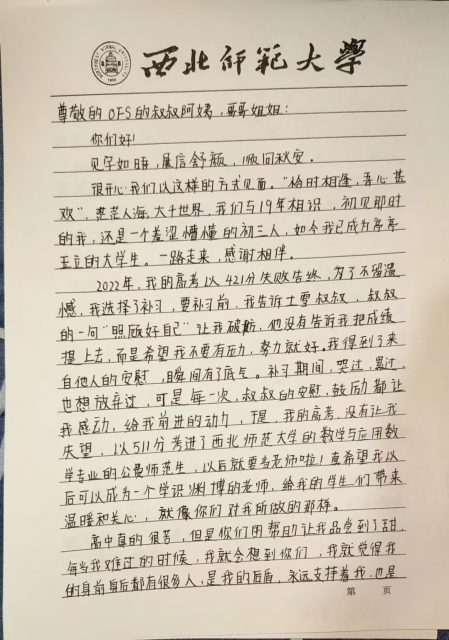 西北师范大学
尊敬的OFS的叔叔阿姨,哥哥姐姐:
你们好!
见字如晤,展信舒颜,顺问秋安。
很开心我们以这样的方式见面。“恰时相逢,吾心甚
欢”,茫茫人海,大千世界,我们与19年相识,初见那时
的我,还是一个羞涩懵懂的初三人,如今我已成为亭亭
玉立的大学生。一路走来,感谢相伴。
2022年,我的高考以421分失败告终,为了不留遗
憾,我选择了补习,要补习前,我告诉土雪叔叔,叔叔
的一句“照顾好自己”让我破防,他没有告诉我把成绩
提上去,而是希望我不要有压力,努力就好。我得到了来
自他人的安慰,瞬间有了底气。补习期间,哭过,累过,
也想放弃过,可是每一次,叔叔的安慰,鼓励都让
我感动,给我前进的动力,于是,我的高考,没有让我
失望,以511分考进了西北师范大学的数学与应用数
学专业的公费师范生,以后就要当老师啦!真希望我以
后可以成为一个学识渊博的老师,给我的学生们带来
温暖和关心,就像你们对我所做的那样。
高中真的很苦,但是你们用帮助让我品尝到了甜,
每当我难过的时候,我就会想到你们,我就觉得我
的身前身后都有很多人,是我的后盾,永远支持着我,也是
第 页